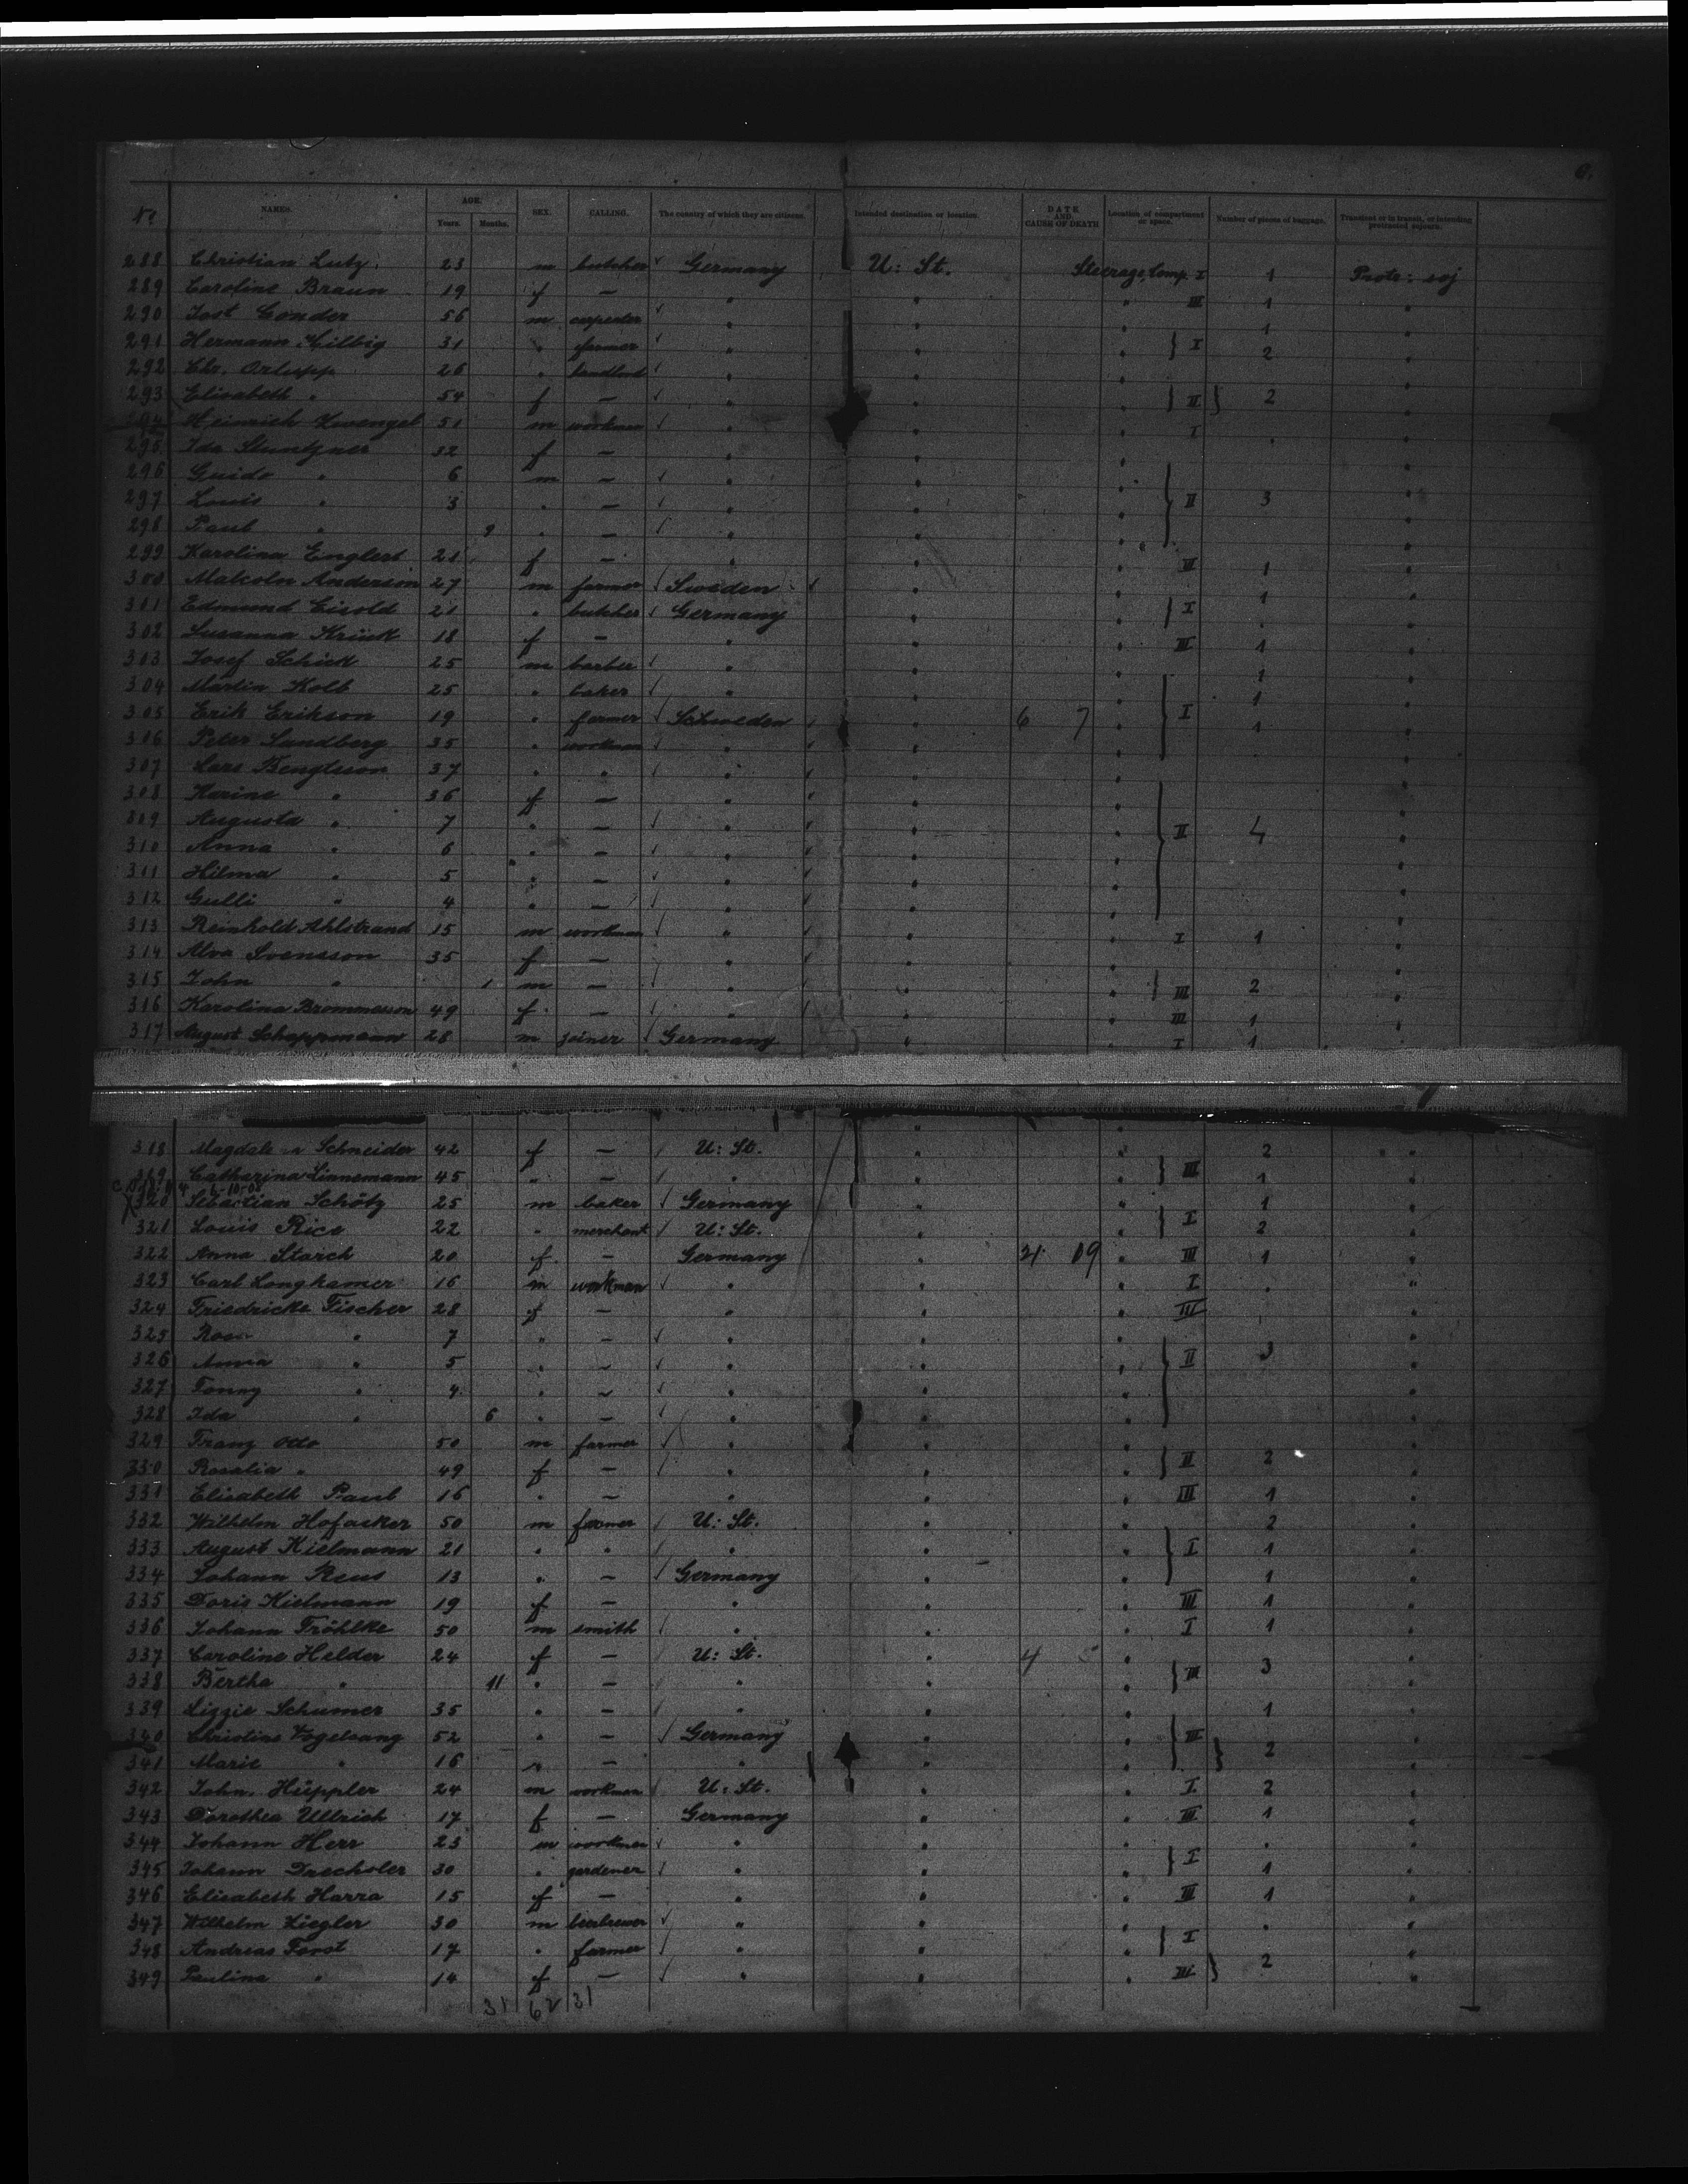 No NAMES. AGE. Years. Months. SEX. CALLING. The country of which they are citizens. Intended destination or location. DATE AND CAUSE OF DEATH Location of compartment or space. Number of pieces of baggage. Transient or in transit, or intending protracted sojourn.
288 Christian Lutz 23 m butcher Germany U: St. Steerage, Comp. I 1 Protr: soj
289 Caroline Braun 19 f — " " " III 1 "
290 Jost Conder 56 m carpenter " " " 1 "
291 Hermann Hilbig 31 " farmer " " " I 2 "
292 Chr. Orlupp 26 " " " " "
293 Elisabeth " 54 f — " " " II 2 "
294 Heinrich Zwengel 51 m workman " " " I " "
295 Ida 32 f — " " " "
296 Guido " 6 m — " " " "
297 Louis " 3 " — " " " II 3 "
298 Paul " 9 " — " " " "
299 Karolina Englert 21 f — " " " III 1 "
300 Malcolm Anderson 27 m farmer Sweden " " 1 "
301 Edmund Eisold 21 " butcher Germany " " I " "
302 Susanna Krück 18 f — " " " III 1 "
303 Josef Schick 25 m barber " " " 1 "
304 Martin Kolb 25 " baker " " " 1 "
305 Erik Erikson 19 " farmer Schweden " 6 7 " I 1 "
306 Peter Sandberg 35 " workman " " " "
307 Lars Bengtsson 37 " " " " " "
308 Karine " 36 f — " " " "
309 Augusta " 7 " — " " " II 4 "
310 Anna " 6 " — " " " "
311 Hilma " 5 " — " " " "
312 Gulli " 4 " — " " " "
313 Reinhold Ahlstrand 15 m workman " " " I 1 "
314 Alva Svensson 35 f — " " " "
315 John " 1 m — " " " III 2 "
316 Karolina Brommesson 49 f — " " " III 1 "
317 August Schoppmann 28 m joiner Germany " I 1
318 Magdalena Schneider 42 f — U: St. " " 2 "
319 Catharina Linnemann 45 " — " " " III 1 "
320 Sebastian Schötz 25 m baker Germany " " 1 "
321 Louis Rice 22 " merchant U: St. " " I 2 "
322 Anna Starch 20 f — Germany " 21 19 " III 1 "
323 Carl Longhamer 16 m workman " " " I " "
324 Friedricke Fischer 28 f — " " " III "
325 Rosa " 7 " — " " " "
326 Anna " 5 " — " " " II 3 "
327 Fanny " 4 " — " " " "
328 Ida " 6 " — " " " "
329 Franz Otto 50 m farmer " " " "
330 Rosalia " 49 f — " " " II 2 "
331 Elisabeth Paul 16 " — " " " III 1 "
332 Wilhelm Hofacker 50 m farmer U: St. " " 2 "
333 August Kielmann 21 " " " " " I 1 "
334 Johann Reus 13 " — Germany " " 1 "
335 Doris Kielmann 19 f — " " " III 1 "
336 Johann Fröhlke 50 m smith " " " I 1 "
337 Caroline Helder 24 f — U: St. " 4 5 " "
338 Bertha " 11 " — " " " III 3 "
339 Lizzie Schumer 35 " — " " " 1 "
340 Christine Vogelsang 52 " — Germany " " III "
341 Marie " 16 " — " " " 2 "
342 John Hüppler 24 m workman U: St. " " I 2 "
343 Dorothea Ullrich 17 f — Germany " " III 1 "
344 Johann Herr 23 m workman " " " " "
345 Johann Drechsler 30 " gardener " " " I 1 "
346 Elisabeth Harra 15 f — " " " III 1 "
347 Wilhelm Ziegler 30 m beerbrewer " " " " "
348 Andreas Forst 17 " farmer " " " I "
349 Paulina " 14 f — " " " III 2 "
31 62 31